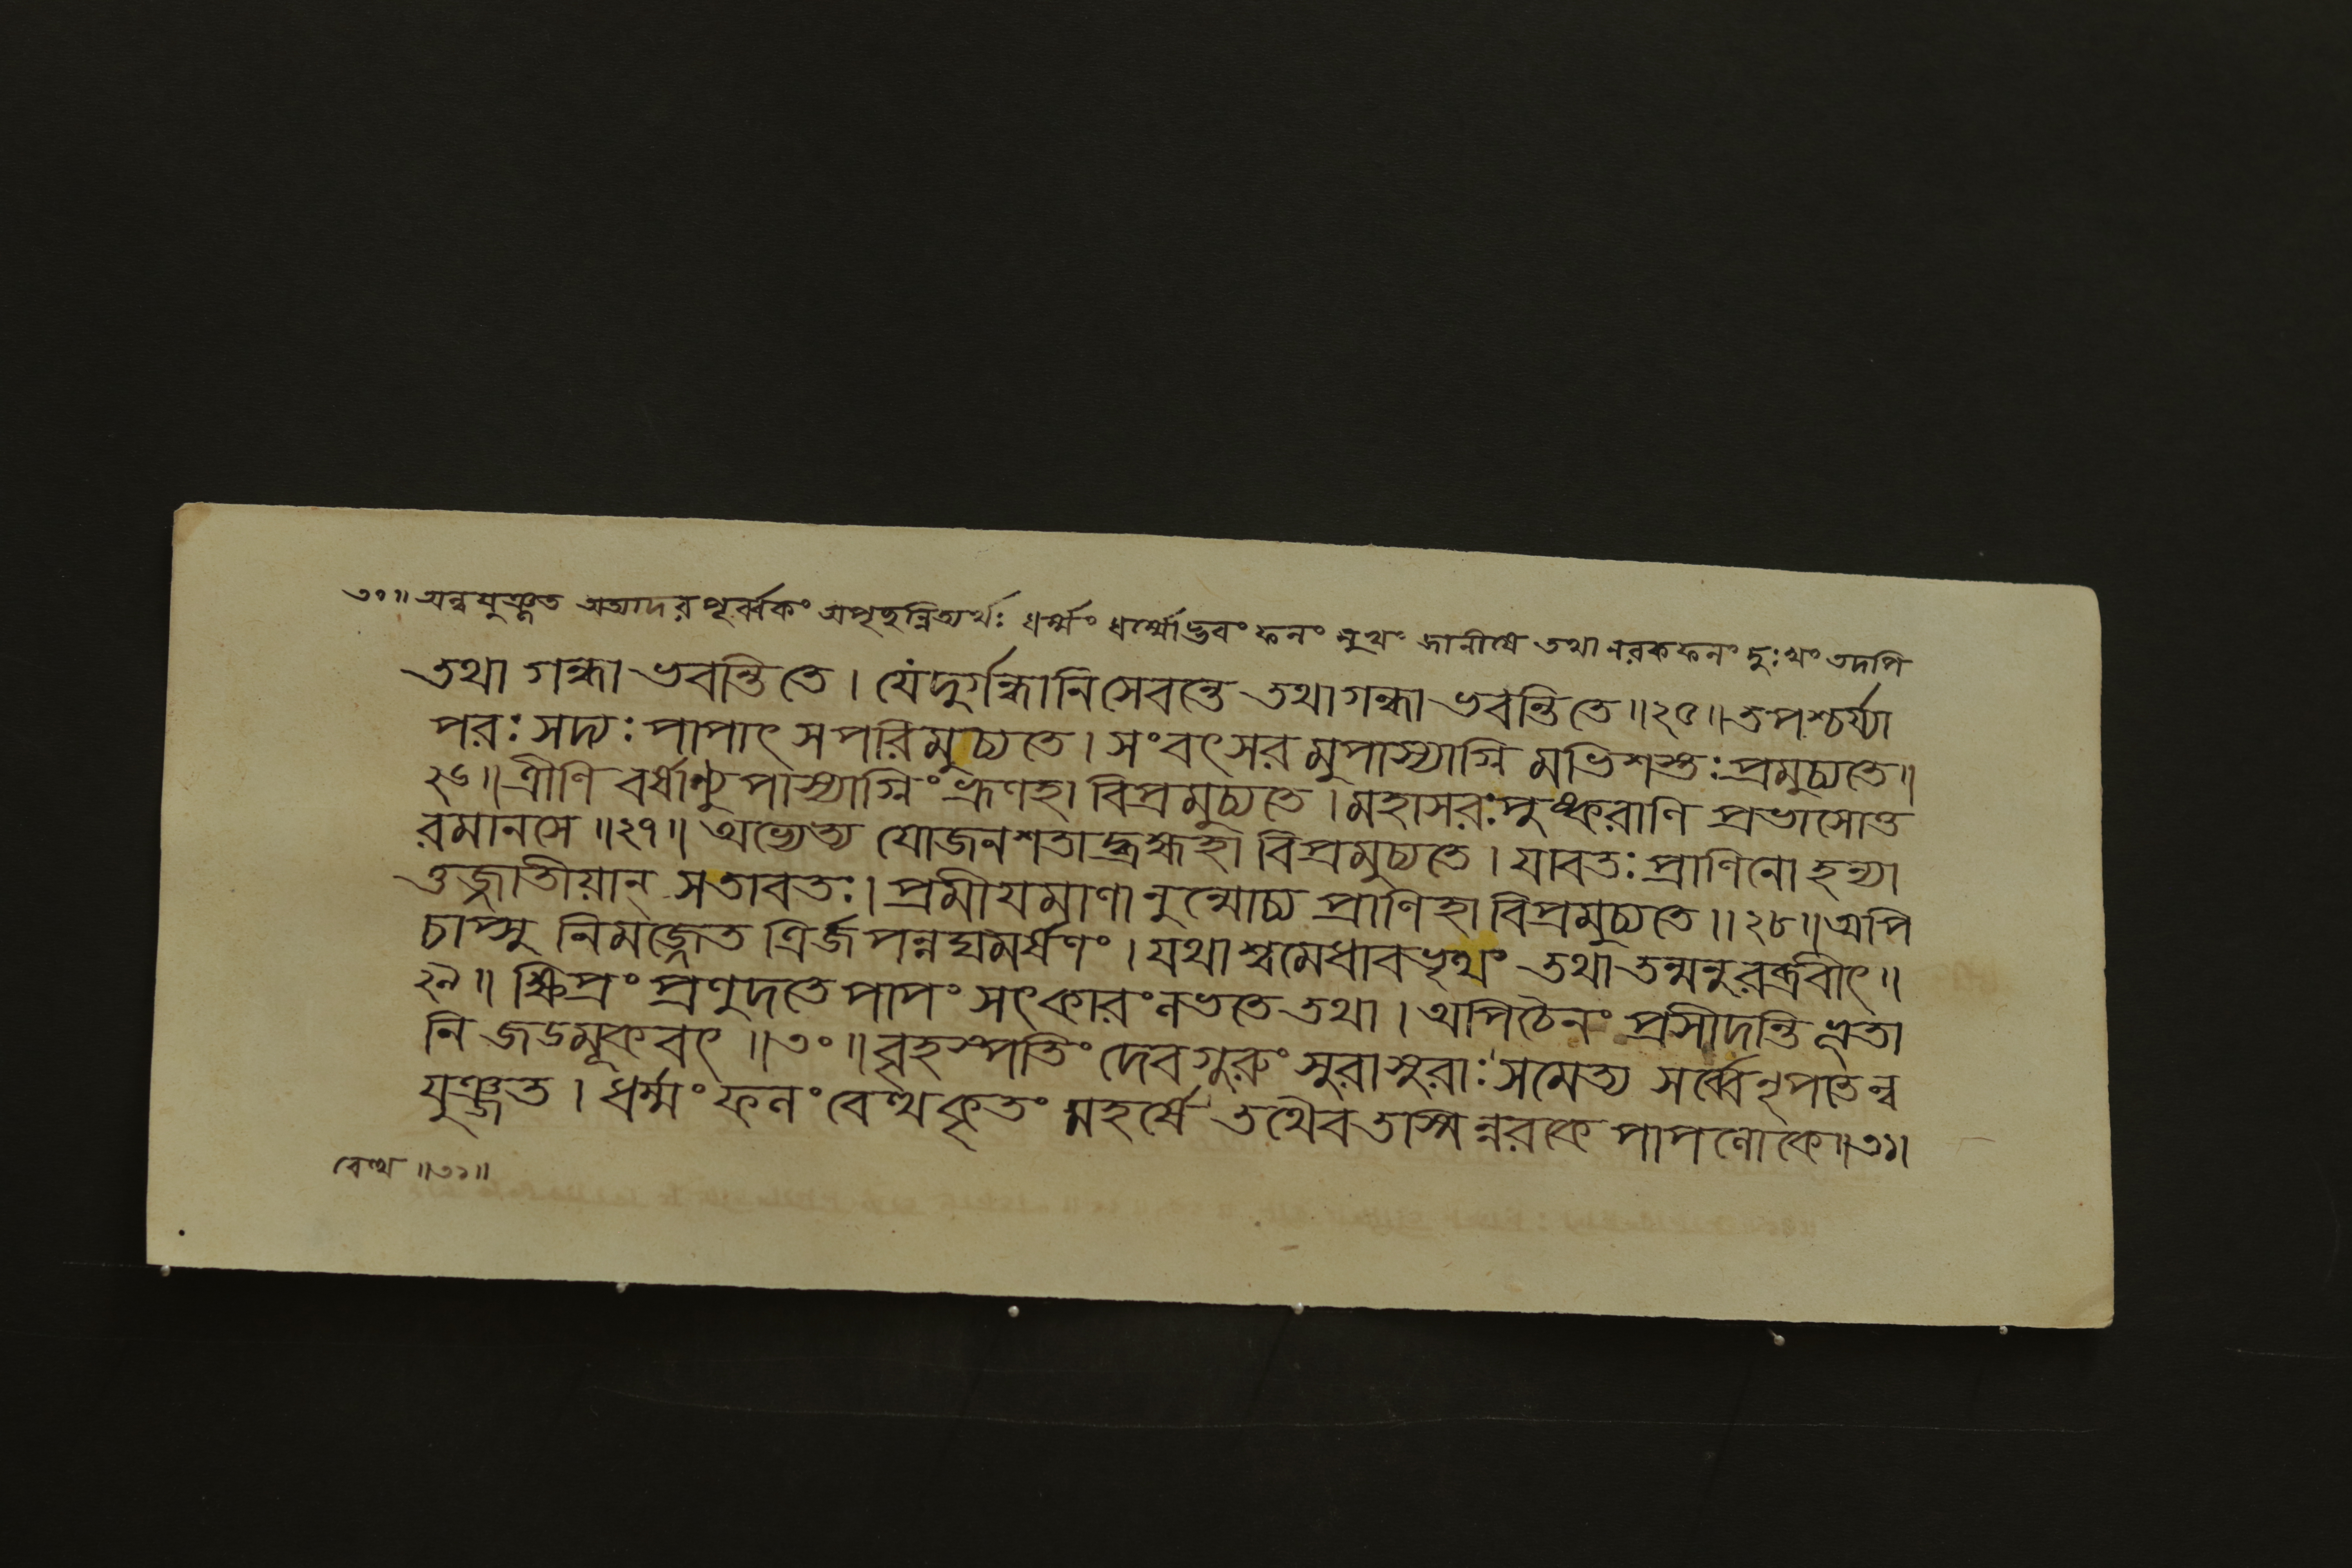 ৩০॥ অন্বযুঞ্জত অত্যাদরপূর্ব্বকং অপৃছন্নিত্যর্থঃ ধর্ম্মং ধর্ম্মোদ্ভবং ফলং সুখং জানীষে তথা নরকফলং দুঃখং তদপি
তথা গন্ধা ভবন্তি তে । যে দুর্গন্ধানি সেবন্তে তথা গন্ধা ভবন্তি তে ॥২৫॥ তপশ্চর্য্যা
পরঃ সদ্যঃ পাপাৎ স পরিমুচ্যতে । সংবৎসরমুপাস্যাগ্নিমভিশস্তঃ প্রমুচ্যতে ॥
২৬॥ ত্রীণি বর্ষাণ্যুপাস্যাগ্নিং ভ্রূণহা বিপ্রমুচ্যতে । মহাসরঃ পুষ্করাণি প্রভাসোত্ত
রমানসে ॥২৭॥ অভ্যেত্য যোজনশতাদ্ভ্রূণহা বিপ্রমুচ্যতে । যাবতঃ প্রাণিনো হন্যা
ত্তজ্জাতীয়ান্ স তাবতঃ । প্রমীযমাণানুন্মোচ্য প্রাণিহা বিপ্রমুচ্যতে ॥২৮॥ অপি
চাপ্সু নিমজ্জেত ত্রির্জপন্নঘমর্ষণং । যথাশ্বমেধাবভৃথং তথা তন্মনুরব্রবীৎ ॥
২৯॥ ক্ষিপ্রং প্রণুদতে পাপং সৎকারং লভতে তথা । অপি চৈনং প্রসীদন্তি ভূতা
নি জডমূকবৎ ॥৩০॥ বৃহস্পতিং দেবগুরুং সুরাসুরাঃ সমেত্য সর্ব্বে নৃপতেন্ব
যুঞ্জত । ধর্ম্মং ফলং বেত্থ কৃতং মহর্ষে তথৈব তস্মিন্নরকে পাপলোকে ॥৩১॥
বেত্থ ॥৩১॥